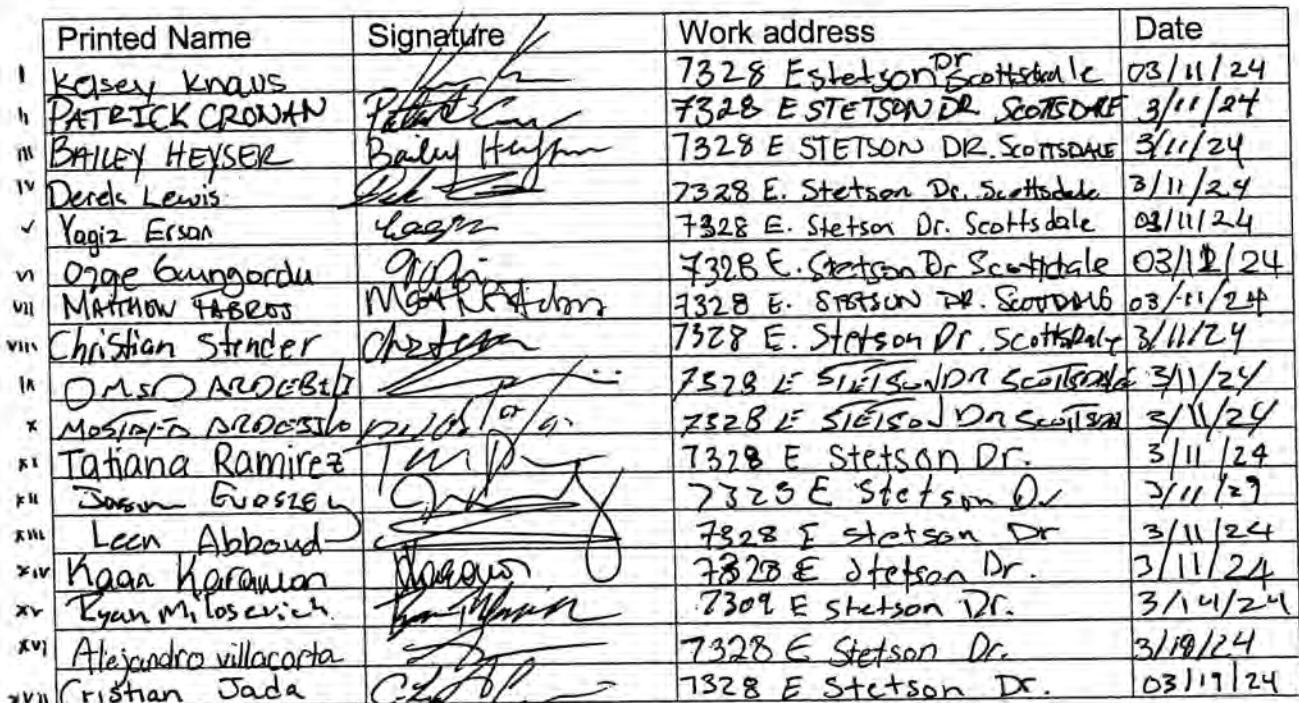 Printed Name Signature Work address Date
I Kelsey Knaus 7328 E stetson Dr Scottsdale 03/11/24
II PATRICK CRONAN 7328 E STETSON DR SCOTTSDALE 3/11/24
III BAILEY HEYSER Bailey Heyser 7328 E STETSON DR. SCOTTSDALE 3/11/24
IV Derek Lewis 7328 E. Stetson Dr. Scottsdale 3/11/24
V Yagiz Ersan 7328 E. Stetson Dr. Scottsdale 03/11/24
VI Ozge Gungordu 7328 E. Stetson Dr Scottsdale 03/12/24
VII MATTHEW FABROS 7328 E. STETSON DR. SCOTTSDALE 03/11/24
VIII Christian Stender 7328 E. Stetson Dr. Scottsdale 3/11/24
IX OMID ARDEBILI 7328 E STETSON DR SCOTTSDALE 3/11/24
X MOSTAFA ARDEBILI 7328 E STETSON DR 3/11/24
XI Tatiana Ramirez 7328 E Stetson Dr. 3/11/24
XII Jason 7328 E Stetson Dr 3/11/24
XIII Leen Abboud 7328 E stetson Dr 3/11/24
XIV Kaan Karaman 7328 E Stetson Dr. 3/11/24
XV Ryan Milosevich 7309 E stetson Dr. 3/14/24
XVI Alejandro villacorta 7328 E Stetson Dr. 3/19/24
XVII Cristian Jada 7328 E Stetson Dr. 03/19/24